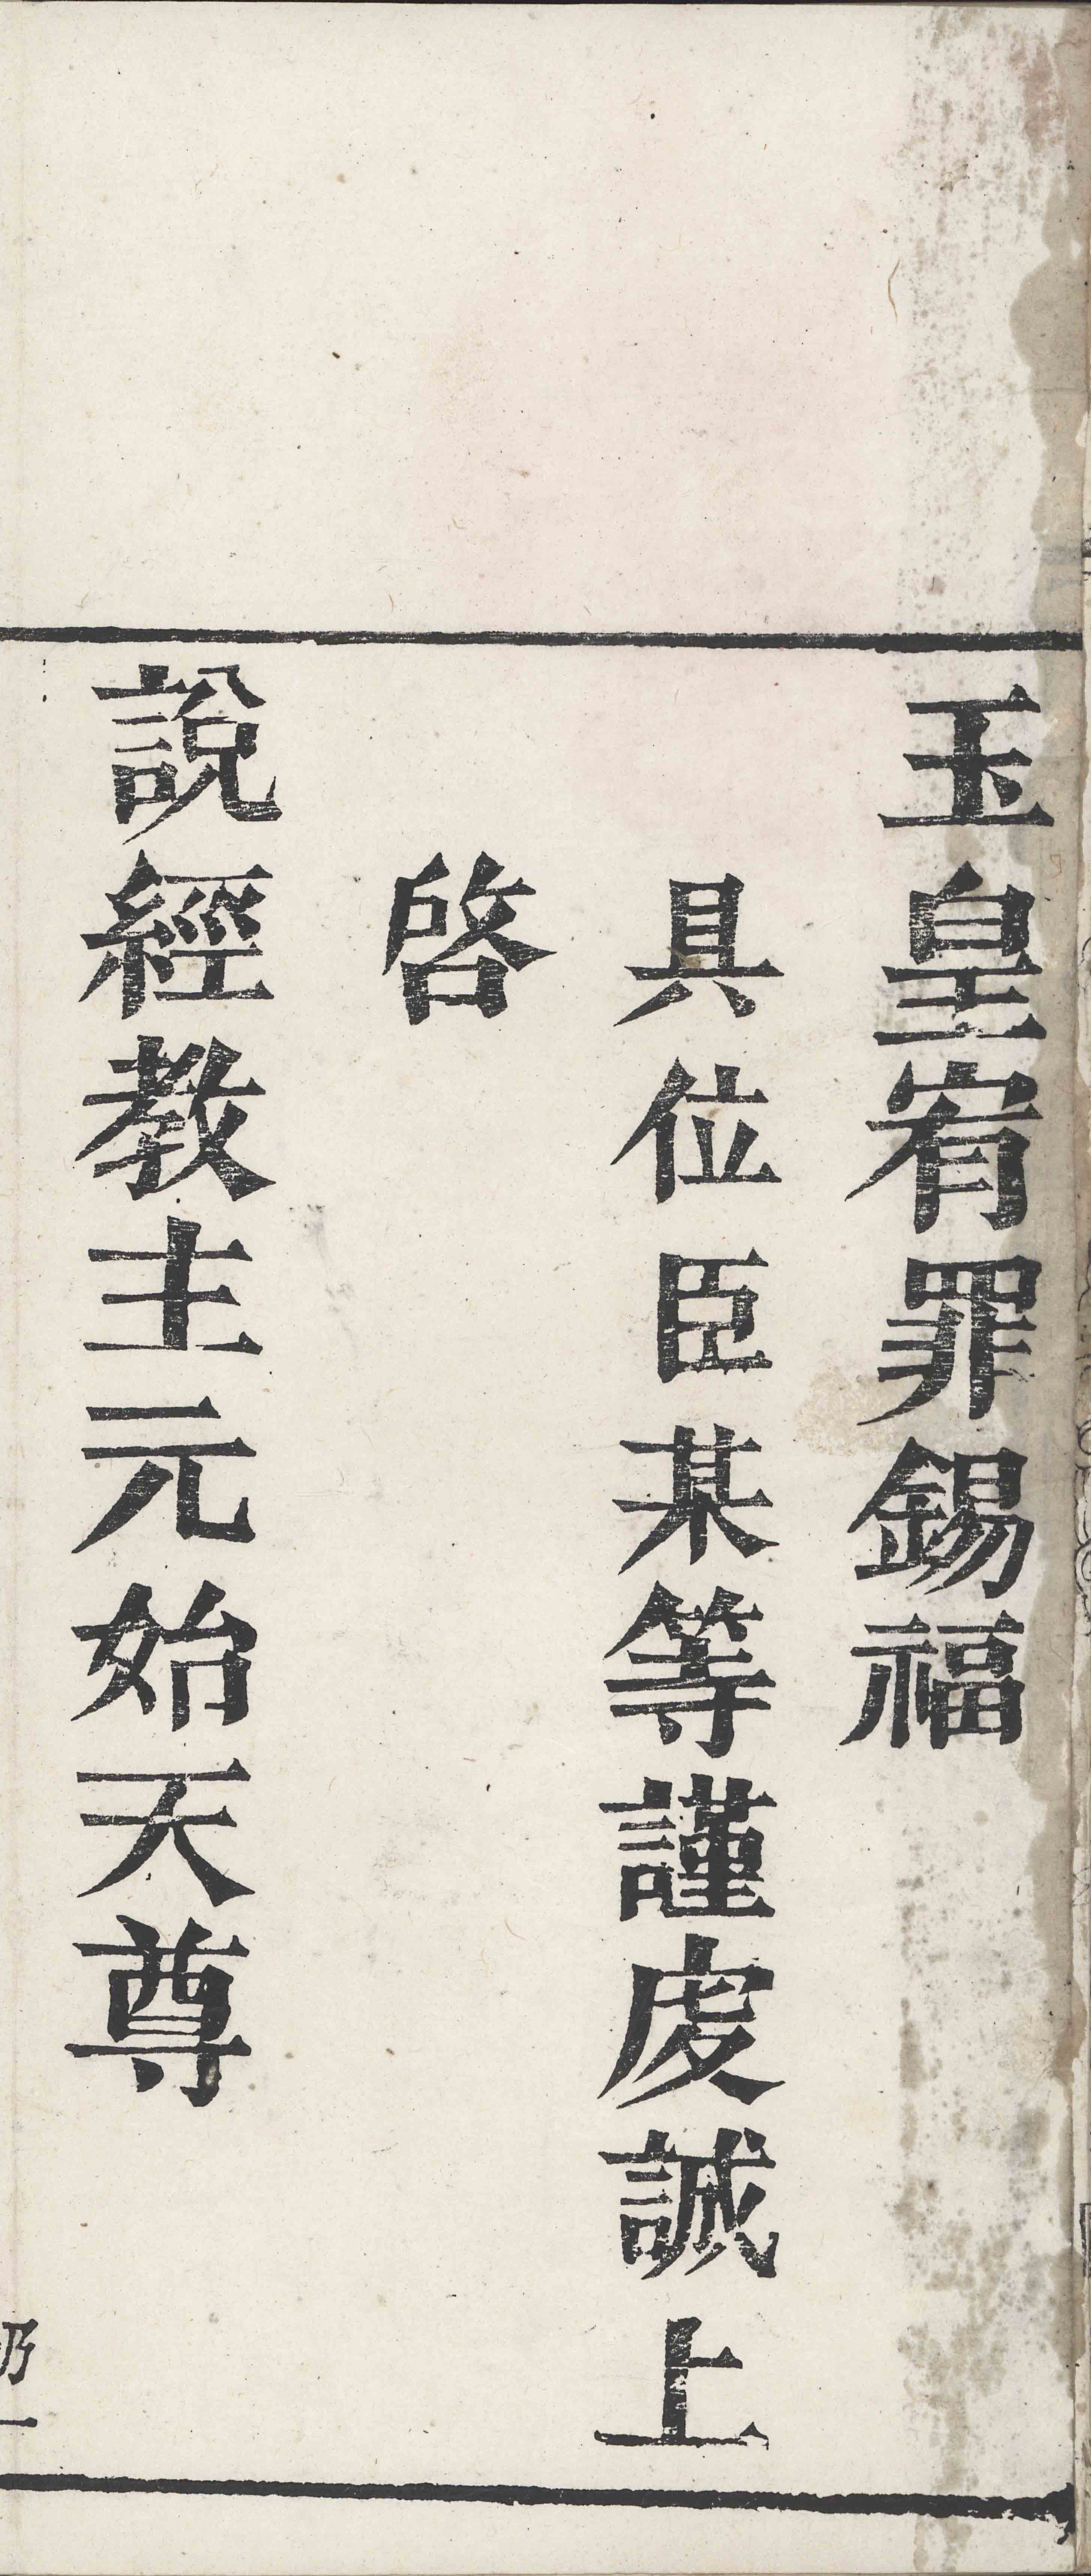 玉皇宥罪錫福
具位臣某等謹虔誠上
啓
說經教主元始天尊